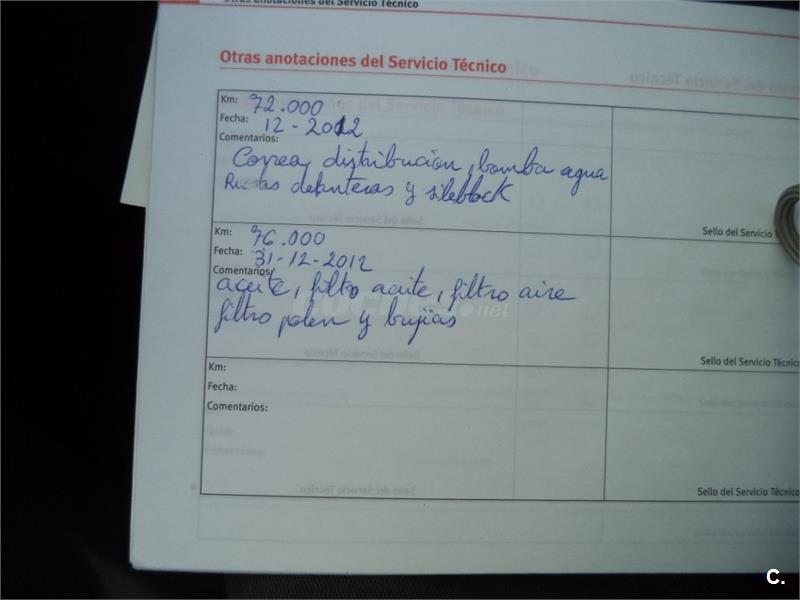 Otras anotaciones del Servicio Técnico
Otras anotaciones del Servicio Técnico
Km: 72.000
Fecha: 12-2012
Comentarios:
Correa, distribución, bomba agua
Ruedas delanteras y sileblock
Sello del Servicio T
Km: 76.000
Fecha: 31-12-2012
Comentarios:
aceite, filtro aceite, filtro aire
filtro polen y bujias
Sello del Servicio Técnico
Km:
Fecha:
Comentarios:
Sello del Servicio Técnico
COCHES.net
C.